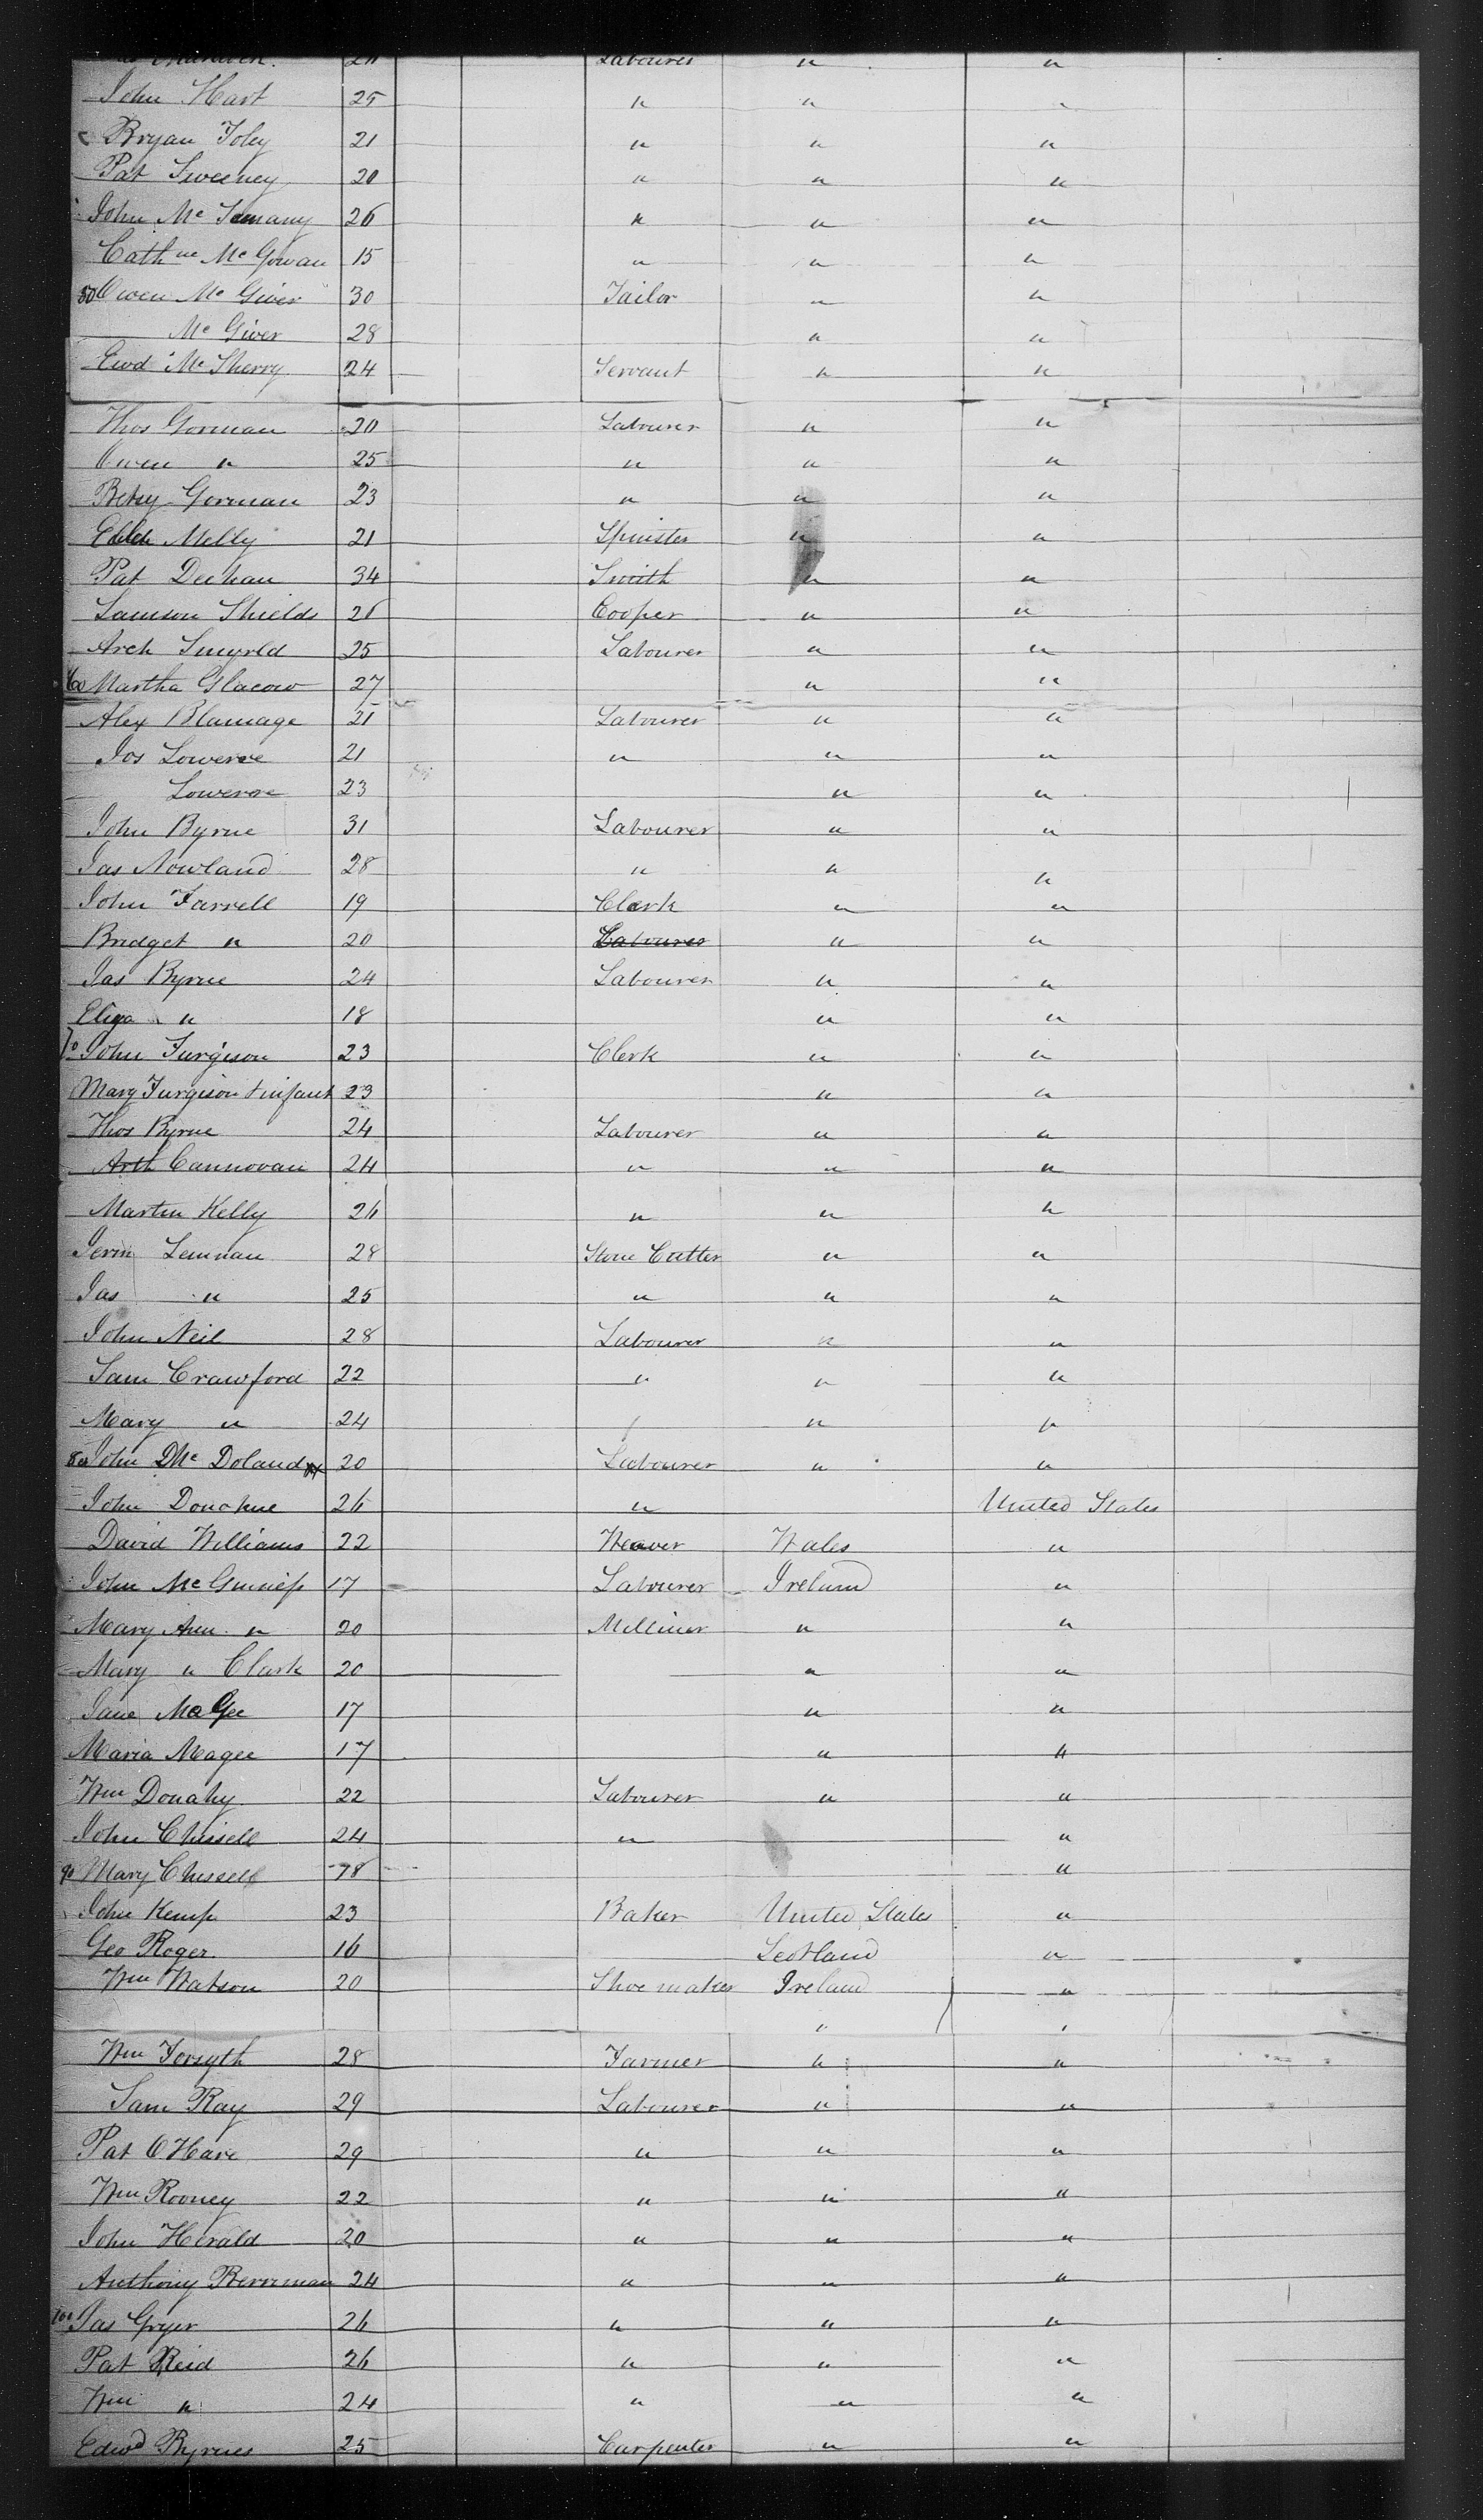 Labourer " "
John Hart 25 " " "
Bryan Foley 21 " " "
Pat Sweeney 20 " " "
John Mc 26 " " "
Cathne Mc Gowan 15 " " "
50 Owen Mc Giver 30 Tailor " "
Mc Giver 28 " "
Ewd Mc Sherry 24 Servant " "
Thos Gorman 20 Labourer " "
Owen " 25 " " "
Betsy Gorman 23 " " "
Melly 21 Spinster " "
Pat Deehan 34 Smith " "
Samson Shields 26 Cooper " "
Arch 25 Labourer " "
60 Martha Glacow 27 " "
Alex Blamage 21 Labourer " "
Jos 21 " " "
23 " "
John Byrne 31 Labourer " "
Jas Nowland 28 " " "
John Farrell 19 Clerk " "
Bridget " 20 Labourer " "
Jas Byrne 24 Labourer " "
Eliza " 18 " "
70 John Furgison 23 Clerk " "
Mary Furgison + infant 23 " "
Thos Byrne 24 Labourer " "
Arth Cannovan 24 " " "
Martin Kelly 26 " " "
Jerm Lennan 28 Stone Cutter " "
Jas " 25 " " "
John Neil 28 Labourer " "
Sam Crawford 22 " " "
Mary " 24 " "
80 John Mc Doland 20 Labourer " "
John Donohue 26 " United States
David Williams 22 Weaver Wales "
John McGuniess 17 Labourer Ireland "
Mary Ann " 20 Milliner " "
Mary " Clark 20 " "
Jane McGee 17 " "
Maria Magee 17 " "
Wm Donahy 22 Labourer " "
John Chissell 24 " "
90 Mary Chissell 18 "
John Kemp 23 Baker United States "
Geo Roger 16 Scotland "
Wm Watson 20 Shoe maker Ireland "
" "
Wm Forsyth 28 Farmer " "
Sam Ray 29 Labourer " "
Pat O'Hare 29 " " "
Wm Rooney 22 " " "
John Herald 20 " " "
Anthony Berriman 24 " " "
100 Jas Gryer 26 " " "
Pat Reid 26 " " "
Wm " 24 " " "
Edwd Byrnes 25 Carpenter " "